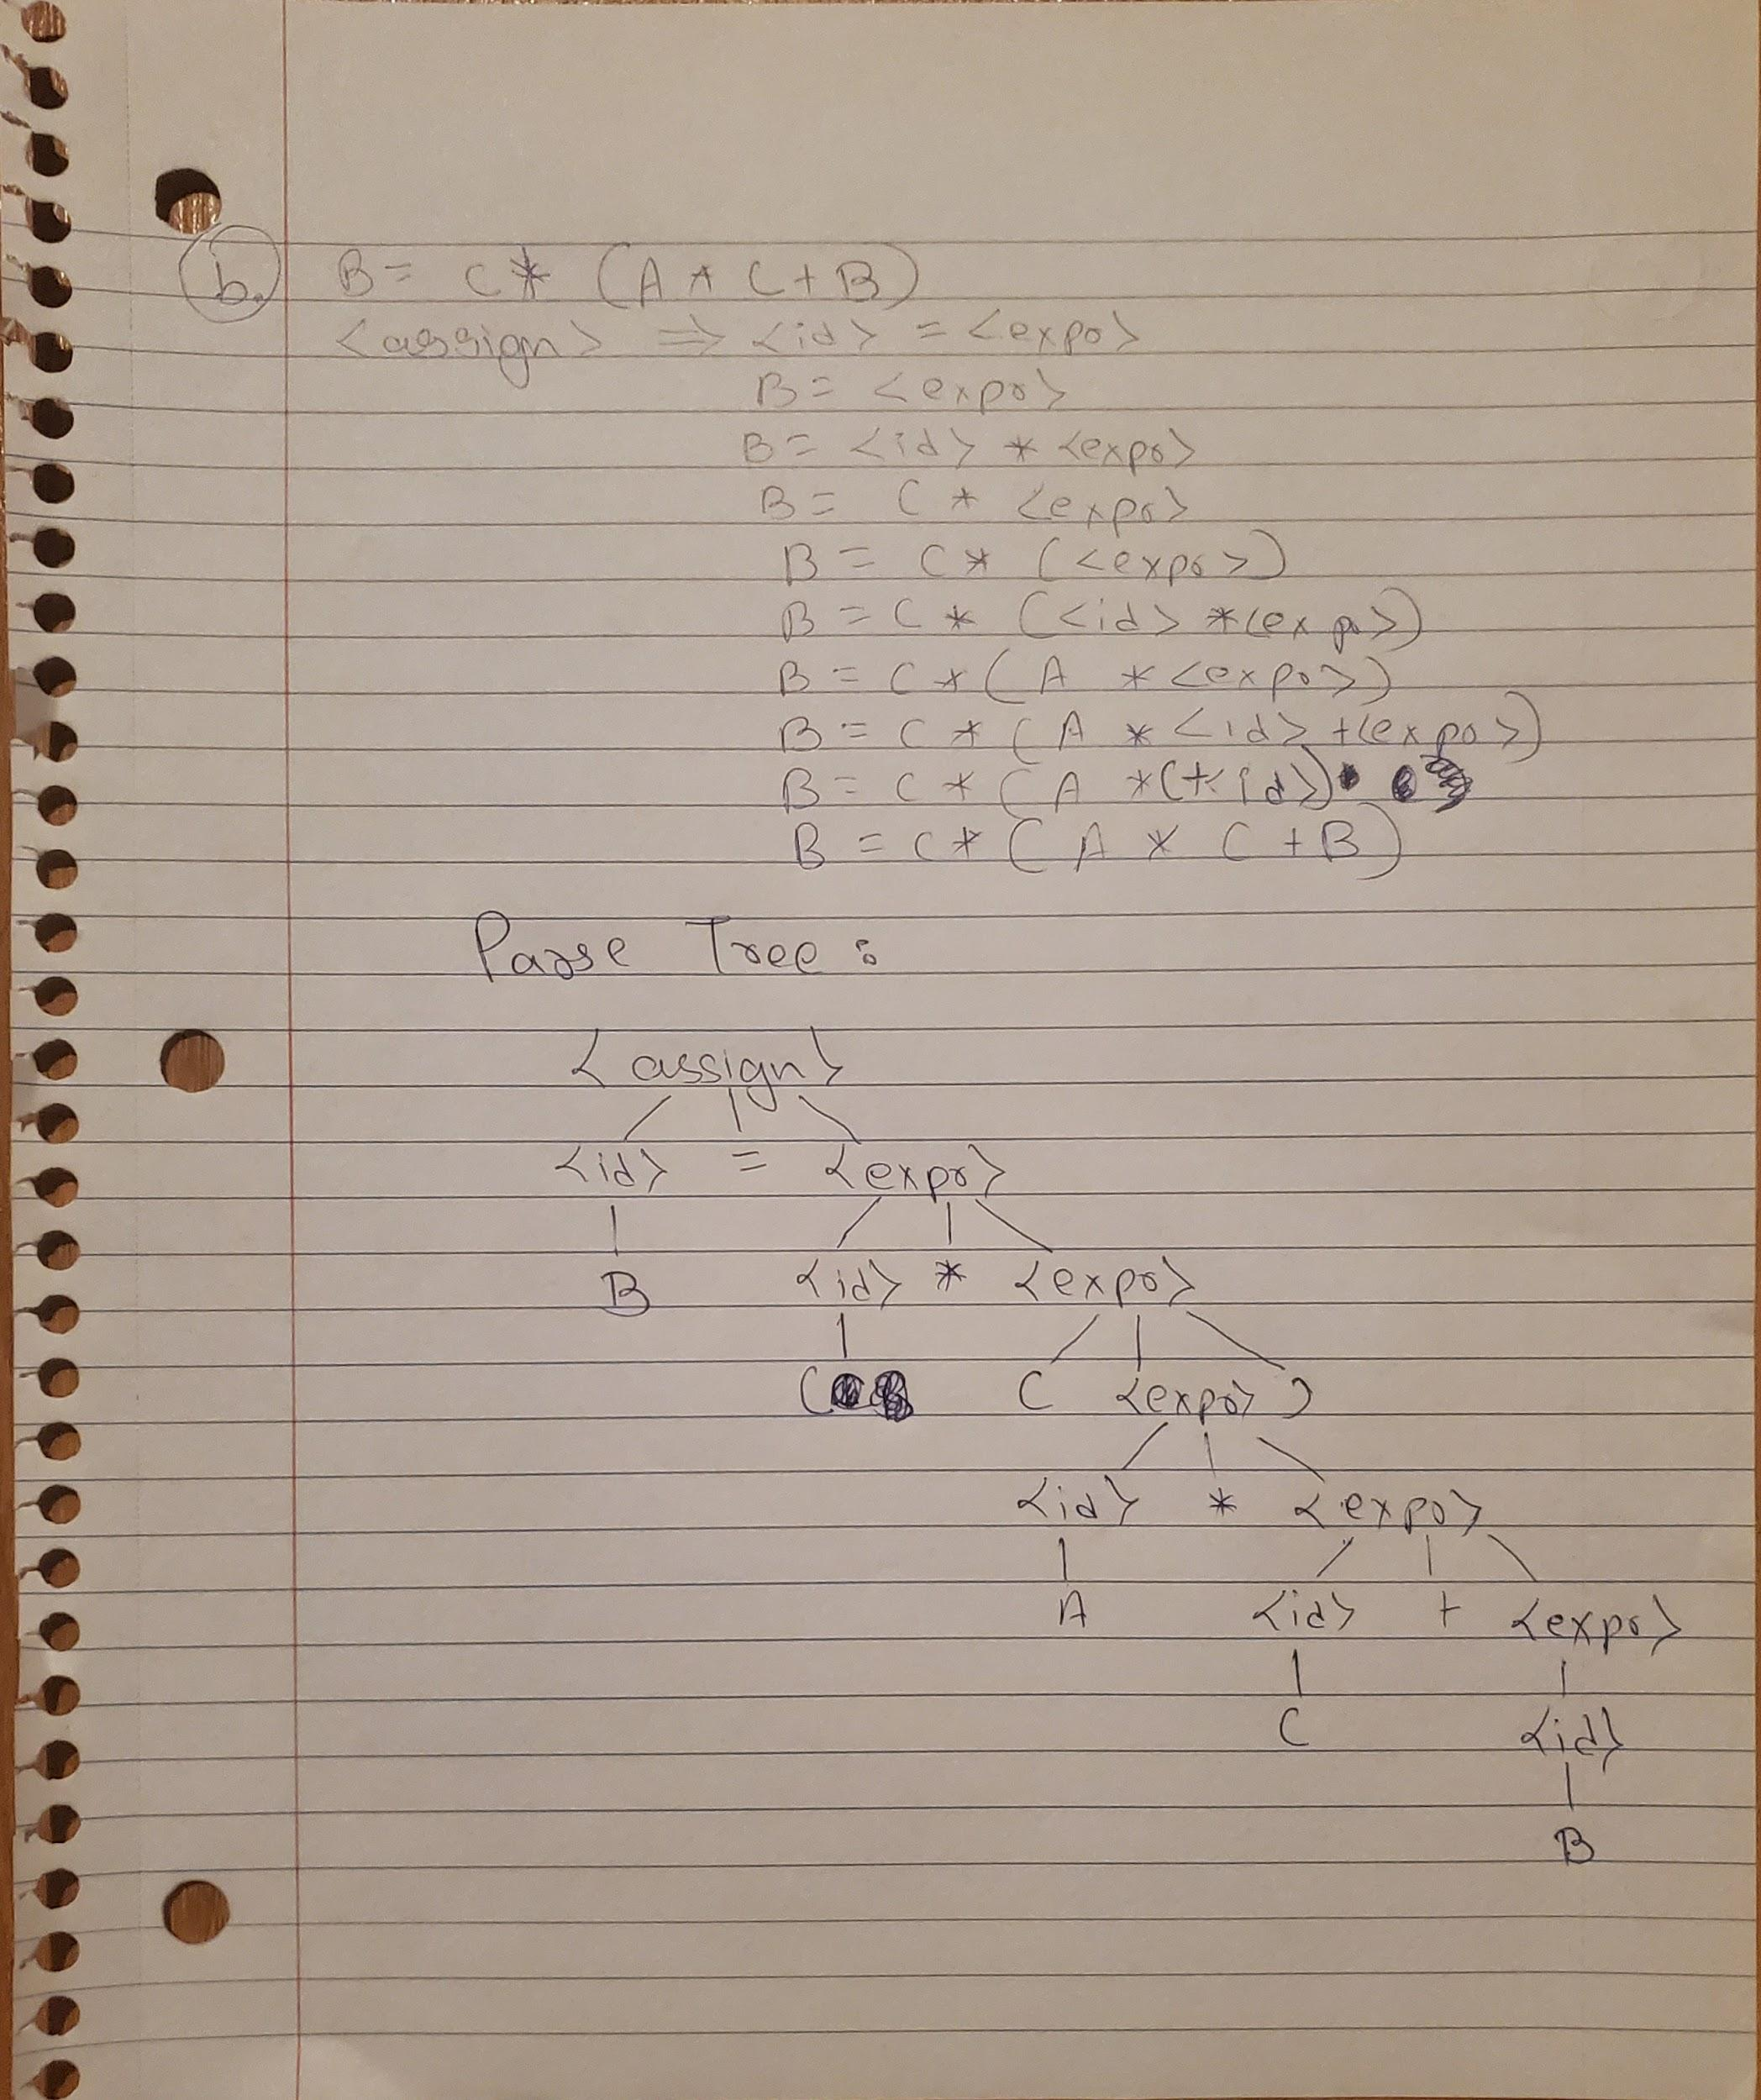 b. B = C * (A * C + B)
<assign> ⇒ <id> = <expr>
B = <expr>
B = <id> * <expr>
B = C * <expr>
B = C * (<expr>)
B = C * (<id> * <expr>)
B = C * (A * <expr>)
B = C * (A * <id> + <expr>)
B = C * (A * C + <id>)
B = C * (A * C + B)
Parse Tree :
<assign>
<id> = <expr>
B <id> * <expr>
C ( <expr> )
<id> * <expr>
A <id> + <expr>
C <id>
B